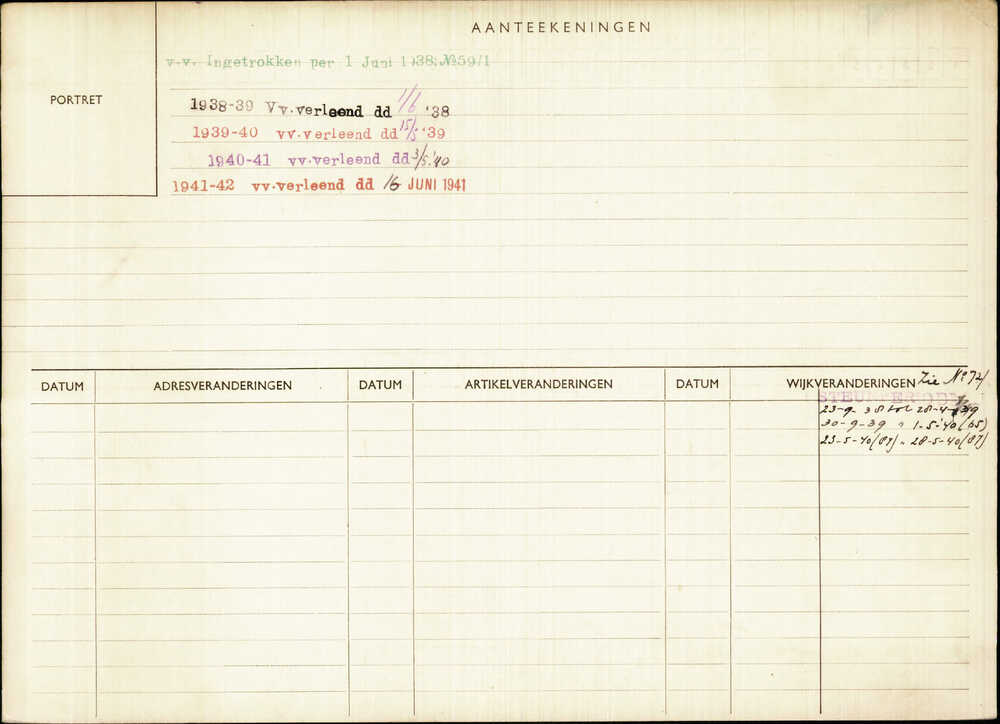 AANTEEKENINGEN
PORTRET
v.v. Ingetrokken per 1 Juni 1938. №59/1
1938-39 Vv.verleend dd 1/6 '38
1939-40 vv.verleend dd 15/5 '39
1940-41 vv.verleend dd 3/5.'40
1941-42 vv.verleend dd 16 JUNI 1941
DATUM ADRESVERANDERINGEN DATUM ARTIKELVERANDERINGEN DATUM WIJKVERANDERINGEN Zie №
STEUNPERIODE
23-9-38 tot 28-4-39
30-9-39 " 1-5-'40 (65)
23-5-40 (87) " 28-5-40 (87)